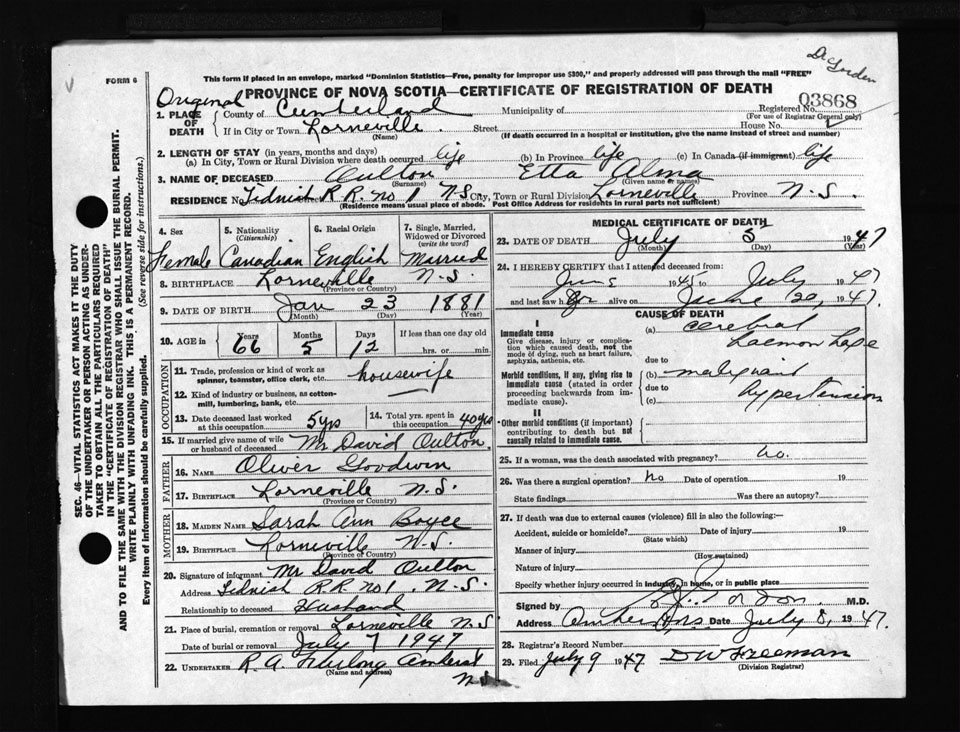 FORM 6
This form if placed in an envelope, marked "Dominion Statistics—Free, penalty for improper use $300," and properly addressed will pass through the mail "FREE"
Original
PROVINCE OF NOVA SCOTIA—CERTIFICATE OF REGISTRATION OF DEATH
03868
1. PLACE OF DEATH County of Cumberland Municipality of Registered No.
(For use of Registrar General only)
If in City or Town Lorneville. Street House No.
(Name) (If death occurred in a hospital or institution, give the name instead of street and number)
2. LENGTH OF STAY (in years, months and days)
(a) In City, Town or Rural Division where death occurred life (b) In Province life (c) In Canada (if immigrant) life
3. NAME OF DECEASED Oulton Etta Alma
(Surname) (Given name or names)
RESIDENCE No. Tidnish Street R.R. no 1 N.S. City, Town or Rural Division Lorneville Province N.S.
(Residence means usual place of abode. Post Office Address for residents in rural parts not sufficient)
4. Sex Female
5. Nationality (Citizenship) Canadian
6. Racial Origin English
7. Single, Married, Widowed or Divorced (write the word) Married
8. BIRTHPLACE Lorneville N.S.
(Province or Country)
9. DATE OF BIRTH Jan 23 1881
(Month) (Day) (Year)
10. AGE in Years 66 Months 5 Days 12 If less than one day old
hrs. or min.
OCCUPATION
11. Trade, profession or kind of work as spinner, teamster, office clerk, etc. housewife
12. Kind of industry or business, as cotton-mill, lumbering, bank, etc.
13. Date deceased last worked at this occupation 5 yrs
14. Total yrs. spent in this occupation 40 yrs
15. If married give name of wife or husband of deceased Mr David Oulton
FATHER
16. NAME Oliver Goodwin
17. BIRTHPLACE Lorneville N.S.
(Province or Country)
MOTHER
18. MAIDEN NAME Sarah Ann Boyce
19. BIRTHPLACE Lorneville N.S.
(Province or Country)
20. Signature of informant Mr David Oulton
Address Tidnish R.R. no 1. N.S.
Relationship to deceased Husband
21. Place of burial, cremation or removal Lorneville N.S
Date of burial or removal July 7 1947
22. UNDERTAKER R.A. Furlong Amherst
(Name and address) N.S.
MEDICAL CERTIFICATE OF DEATH
23. DATE OF DEATH July 5 1947
(Month) (Day) (Year)
24. I HEREBY CERTIFY that I attended deceased from:
June 194 to July 1947
and last saw her alive on June 20, 1947.
CAUSE OF DEATH
I
Immediate cause
Give disease, injury or complication which caused death, not the mode of dying, such as heart failure, asphyxia, asthenia, etc.
(a) cerebral haemorrhage
due to
Morbid conditions, if any, giving rise to immediate cause (stated in order proceeding backwards from immediate cause).
(b) malignant
due to
(c) hypertension
II
Other morbid conditions (if important) contributing to death but not causally related to immediate cause.
25. If a woman, was the death associated with pregnancy? no.
26. Was there a surgical operation? no Date of operation 19
State findings Was there an autopsy?
27. If death was due to external causes (violence) fill in also the following:—
Accident, suicide or homicide? Date of injury 19
(State which)
Manner of injury
(How sustained)
Nature of injury
Specify whether injury occurred in industry, in home, or in public place
Signed by M.D.
Address Amherst, N.S. Date July 8, 1947.
28. Registrar's Record Number
29. Filed July 9 1947 D W Freeman
(Division Registrar)
SEC. 46—VITAL STATISTICS ACT MAKES IT THE DUTY
OF THE UNDERTAKER OR PERSON ACTING AS UNDER-
TAKER TO OBTAIN ALL THE PARTICULARS REQUIRED
IN THE "CERTIFICATE OF REGISTRATION OF DEATH"
AND TO FILE THE SAME WITH THE DIVISION REGISTRAR WHO SHALL ISSUE THE BURIAL PERMIT.
WRITE PLAINLY WITH UNFADING INK. THIS IS A PERMANENT RECORD.
Every item of Information should be carefully supplied. (See reverse side for instructions.)